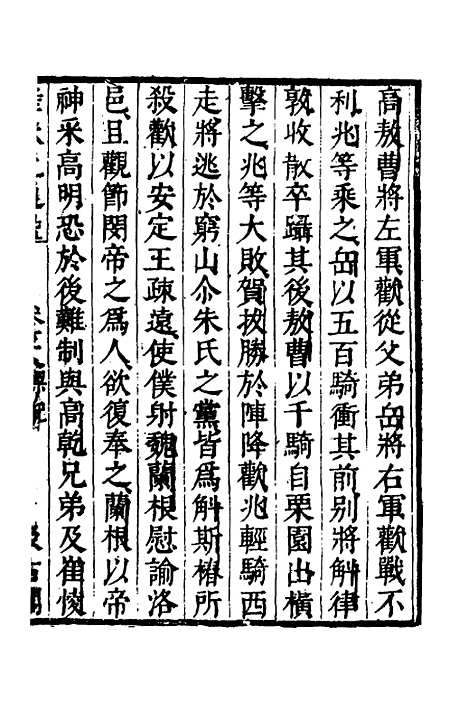 高敖曹將左軍歡從父弟岳將右軍歡戰不
利兆等乘之岳以五百騎衝其前别將斛律
敦收散卒躡其後敖曹以千騎自栗園出橫
擊之兆等大敗賀拔勝於陣降歡兆輕騎西
走將逃於窮山尒朱氏之黨皆爲斛斯椿所
殺歡以安定王疎遠使僕射魏蘭根慰諭洛
邑且觀節閔帝之爲人欲復奉之蘭根以帝
神采高明恐於後難制與高乾兄弟及崔㥄